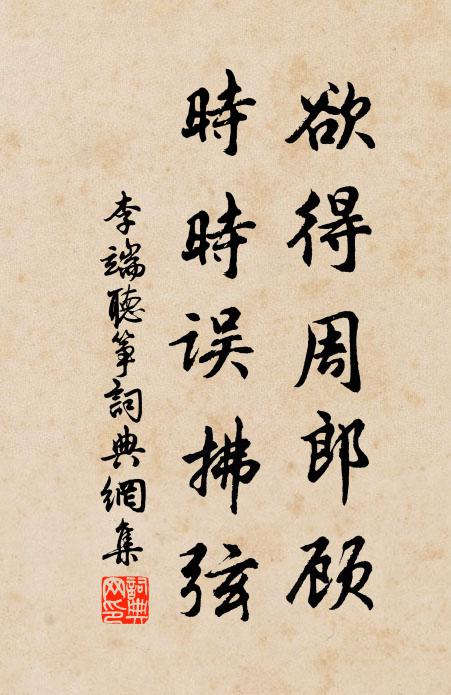 欲得周郎顾
時時误拂弦
李端聽筝詞典網集
詞典網印